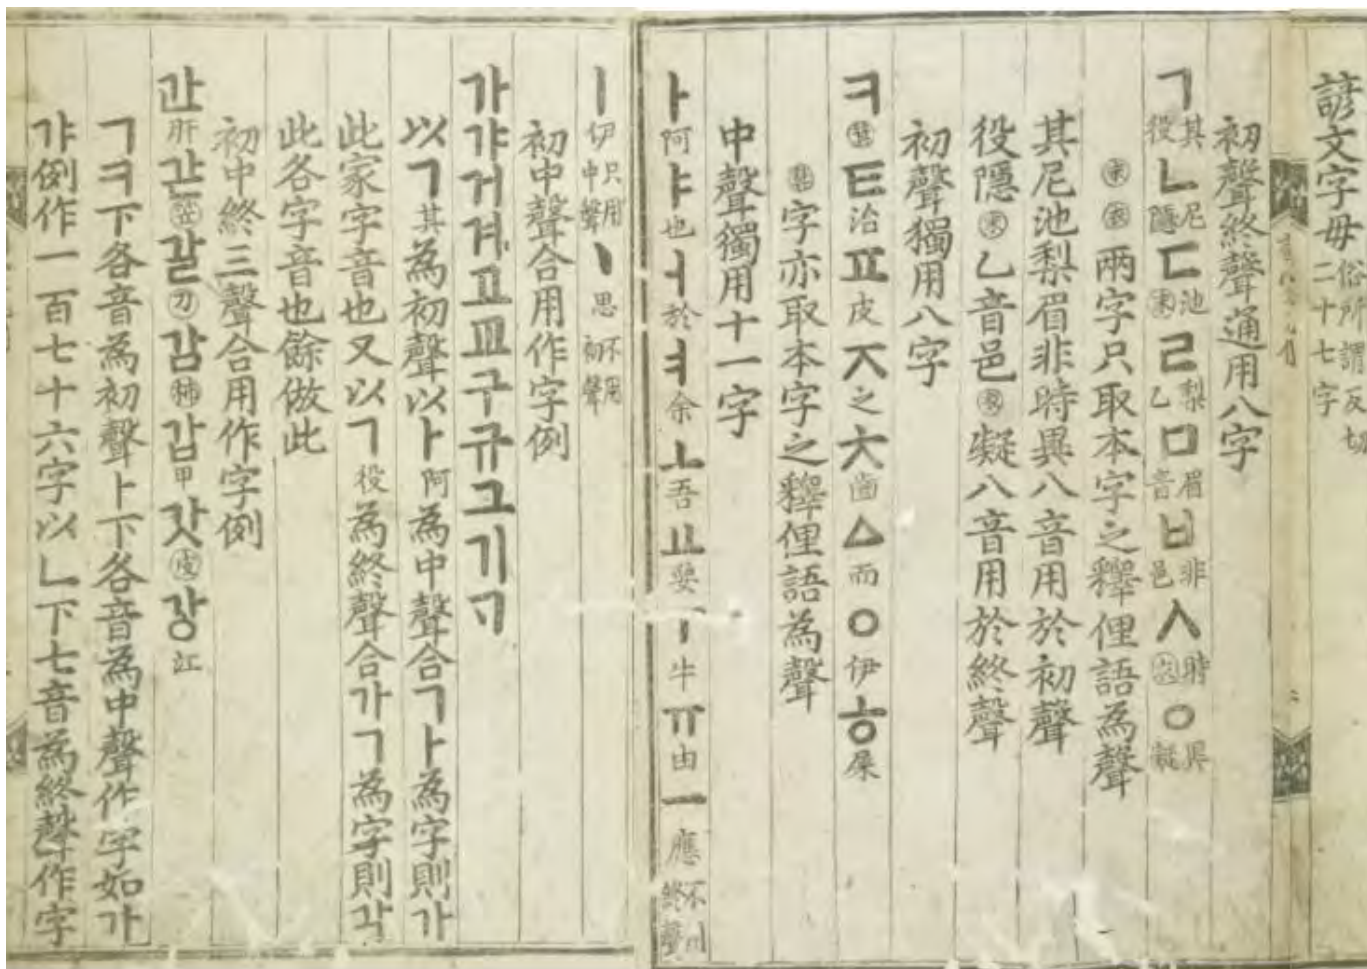 諺文字母 俗所謂反切二十七字
初聲終聲通用八字
ㄱ其役ㄴ尼隱ㄷ池末ㄹ梨乙ㅁ眉音ㅂ非邑ㅅ時衣ㆁ異凝
末衣兩字只取本字之釋俚語為聲
其尼池梨眉非時異八音用於初聲
役隱末乙音邑衣凝八音用於終聲
初聲獨用八字
ㅋ箕ㅌ治ㅍ皮ㅈ之ㅊ齒ㅿ而ㅇ伊ㅎ屎
箕字亦取本字之釋俚語為聲
中聲獨用十一字
ㅏ阿ㅑ也ㅓ於ㅕ余ㅗ吾ㅛ要ㅜ牛ㅠ由ㅡ應不用終聲
ㅣ伊只用中聲ㆍ思不用初聲
初中聲合用作字例
가갸거겨고교구규그기ᄀᆞ
以ㄱ其為初聲以ㅏ阿為中聲合ㄱㅏ為字則가
此家字音也又以ㄱ役為終聲合가ㄱ為字則각
此各字音也餘倣此
初中終三聲合用作字例
간肝갇笠갈刀감柿갑甲갓皮강江
ㄱㅋ下各音為初聲ㅏ下各音為中聲作字如가
갸例作一百七十六字以ㄴ下七音為終聲作字